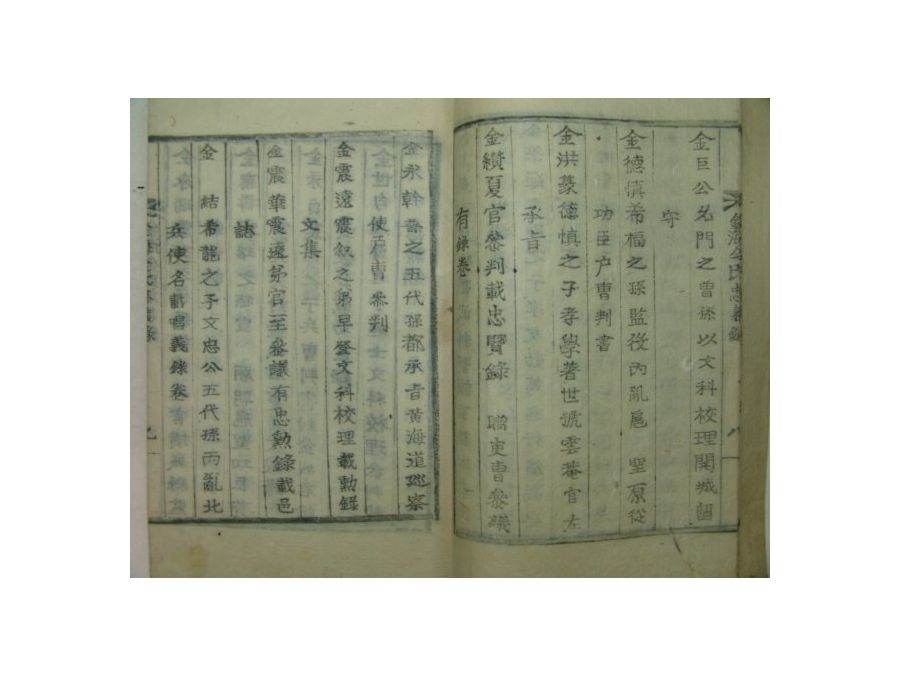 金巨公允門之曾孫以文科校理開城留
守
金德慎希福之孫監役丙亂扈聖原從
功臣户曹判書
金洪篆德慎之子孝學著世號雲菴官左
承旨
金纘夏官叅判載忠賢錄 贈吏曹叅議
有錄卷
金永幹 之五代孫都承旨黃海道廵察
使 曹叅判
金震遠震叙之弟早登文科校理載勲錄
文集
金震華震遠弟官至叅議有忠勲錄載邑
誌
金 結希龍之子文忠公五代孫丙亂北
兵使名 唱義錄卷